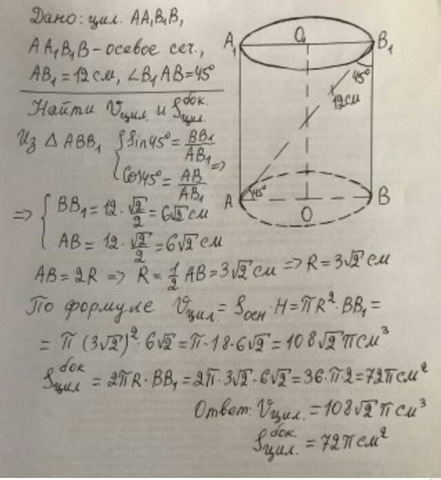 Дано: цил. AA₁B₁B,
AA₁B₁B – осевое сеч.,
AB₁ = 12 см, ∠B₁AB = 45°
Найти Vцил. и Sцил.бок.
Из △ABB₁ { Sin45° = BB₁/AB₁
Cos45° = AB/AB₁ ⇒
⇒ { BB₁ = 12·√2/2 = 6√2 см
AB = 12·√2/2 = 6√2 см
AB = 2R ⇒ R = 1/2 AB = 3√2 см ⇒ R = 3√2 см
По формуле Vцил. = Sосн·H = πR²·BB₁ =
= π(3√2)²·6√2 = π·18·6√2 = 108√2 π см³
Sцил.бок = 2πR·BB₁ = 2π·3√2·6√2 = 36·π·2 = 72π см²
Ответ: Vцил. = 108√2 π см³
Sцил.бок. = 72π см²
A₁ O₁ B₁
45°
12 см
A 45° B
O